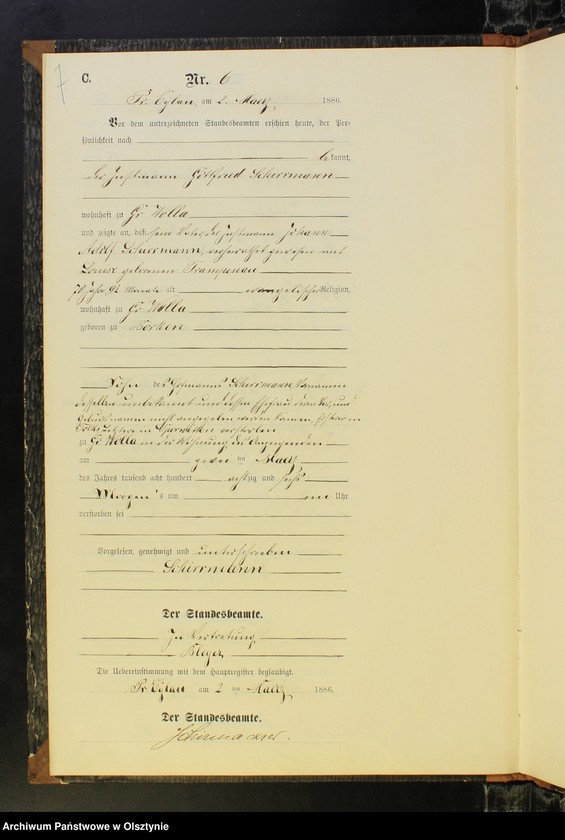 7
C.
Nr. 6
Pr. Eylau, am 2. Maerz 1886.
Vor dem unterzeichneten Standesbeamten erschien heute, der Per-
sönlichkeit nach
bekannt,
der Instmann Gottfried Schirrmann
wohnhaft zu Gr Wolla
und zeigte an, daß sein Vater der Instmann Johann
Adolf Schirrmann, verheirathet gewesen mit
Louise geborenen
70 Jahr, 9½ Monate alt evangelischer Religion,
wohnhaft zu Gr Wolla
geboren zu
Sohn des Schirrmann, Vornamen
desselben unbekannt und dessen Ehefrau deren Vor, und
Geburtsnamen nicht angegeben werden können,
verstorben
zu Gr Wolla in der Wohnung des Anzeigenden
am zwei ten Maerz
des Jahres tausend acht hundert achtzig und sechs
Morgens um ein Uhr
verstorben sei
Vorgelesen, genehmigt und unterschrieben
Schirrmann
Der Standesbeamte.
In Vertretung
Meyer
Die Uebereinstimmung mit dem Hauptregister beglaubigt.
Pr. Eylau am 2 ten Maerz 1886.
Der Standesbeamte.
Archiwum Państwowe w Olsztynie